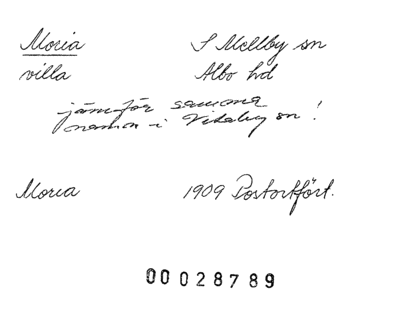 Moria S Mellby sn
villa Albo hd
jämför samma
namn i Vitaby sn!
Moria 1909 Postortfört.
00028789